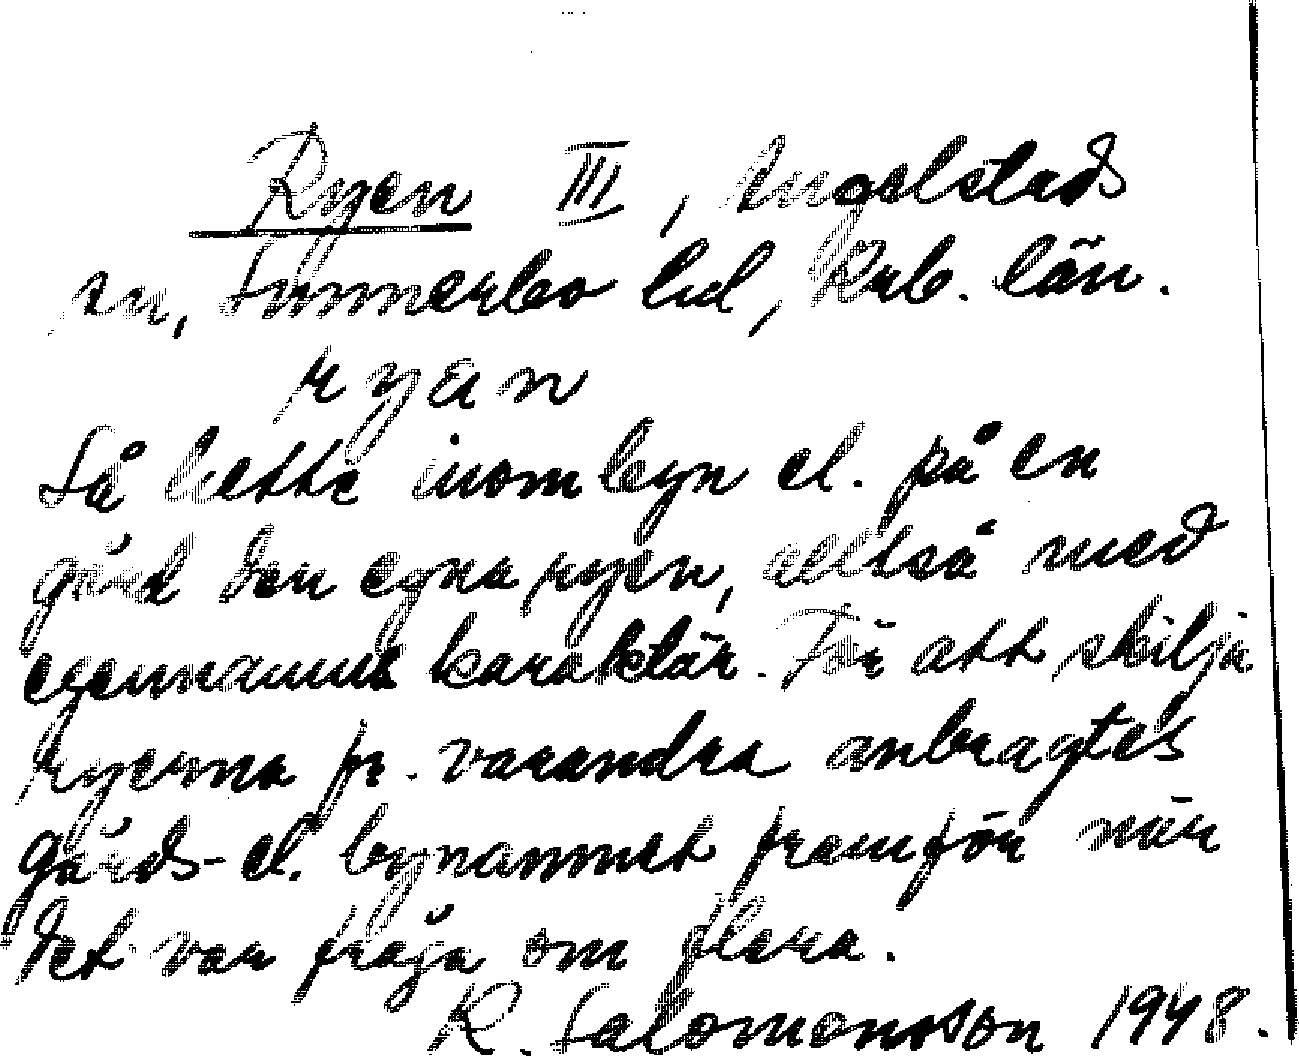 Ryen III, Ingelstads
sn, Sunnerbo hd, Krb. län.
ryan
Så hette inom byn el. på en
gård den egna ryen, alltså med
egennamns karaktär. För att skilja
ryerna fr. varandra anbragtes
gårds- el. bynamnet framför när
det var fråga om flera.
R. Salomonsson 1948.